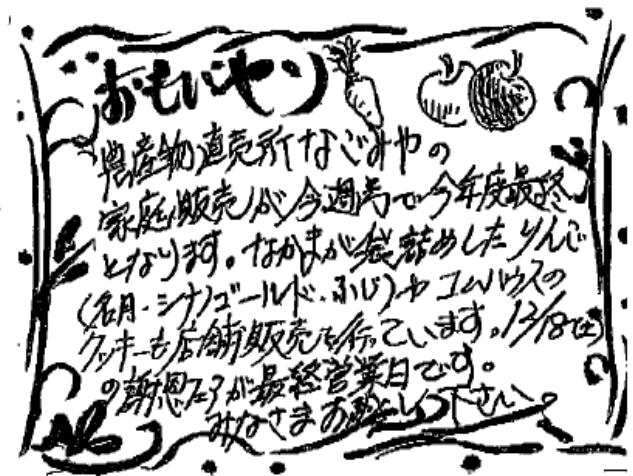 おもいやり
農産物直売所なごみやの
家庭販売が今週号で今年度最終
となります。なかまが袋詰めしたりんご
(名月・シナノゴールド・ふじ)やコムハウスの
クッキーも店舗販売も行っています。12/18(土)
の謝恩フェアが最終営業日です。
みなさまお越し下さい。